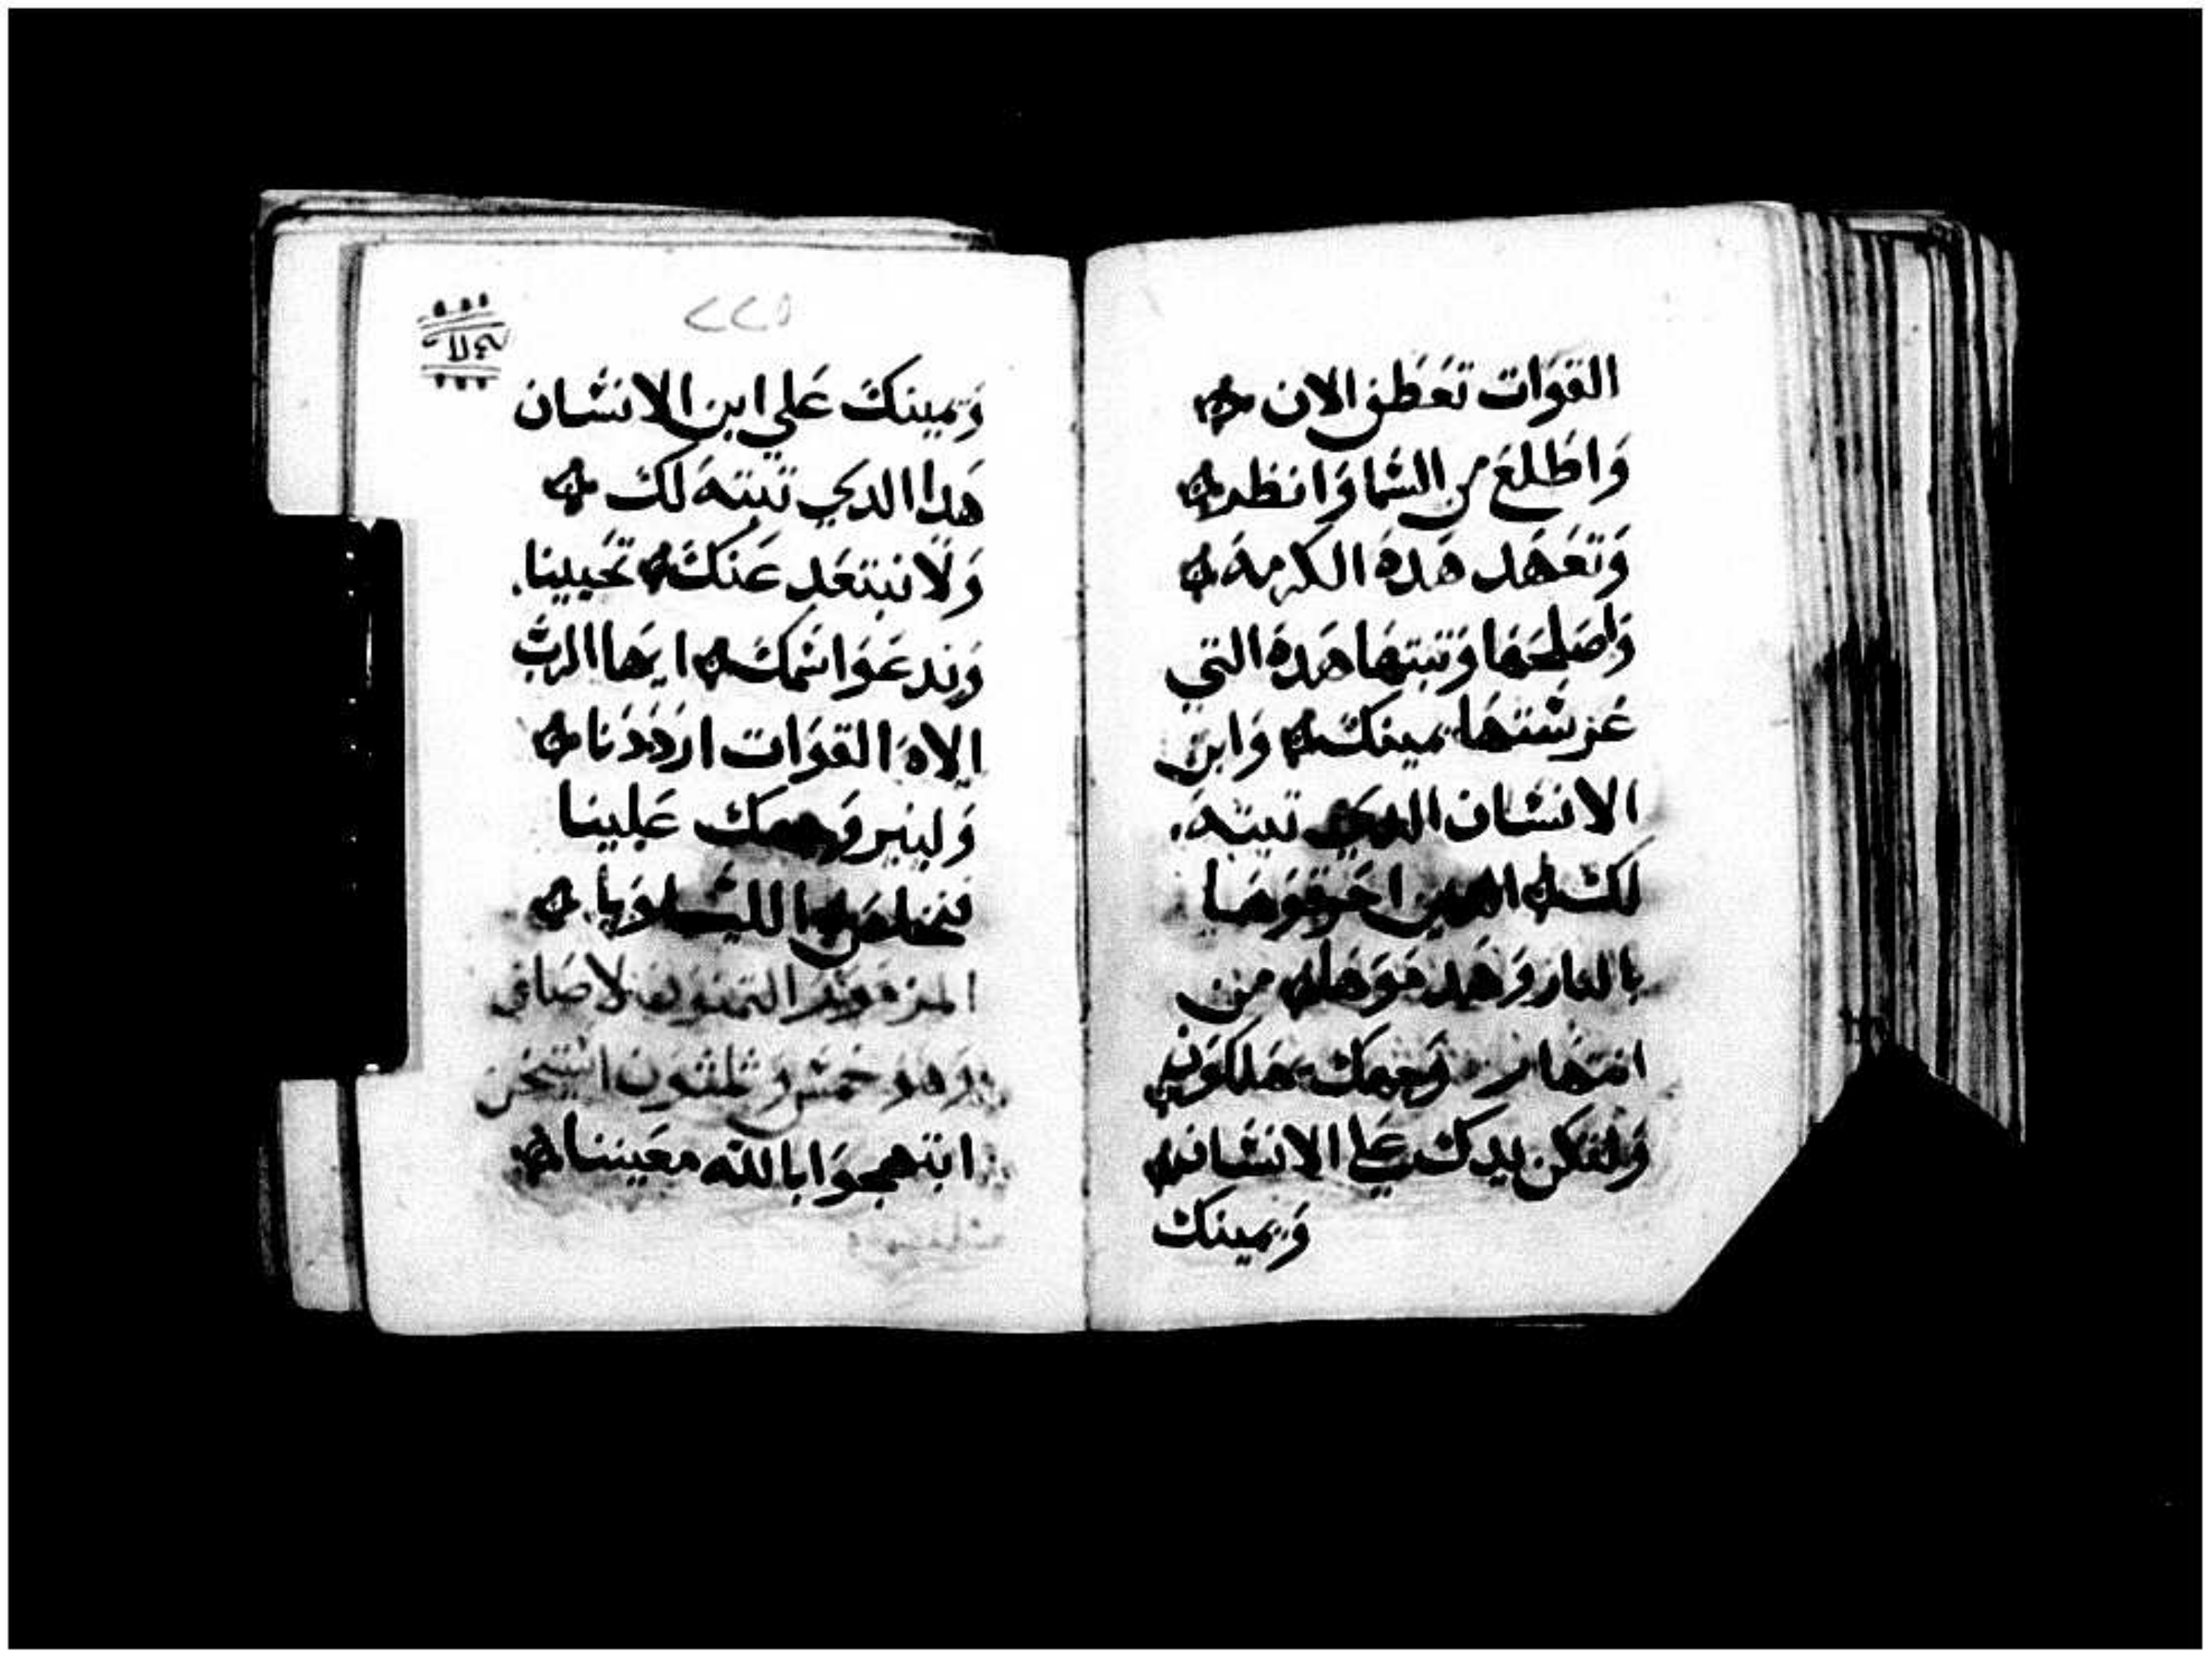 القوَات تعَطف الان
وَاطلعَ من السَّما وَانظر
وَتعَهَد هَده الكرمه
وَاصلحَهَا وَتبتهَا هَده التي
غرستهَا يمينك وَابن
الانسَان الدي تبته
لك الدين احرقوَها
بالنار وَهَدموَها من
انتهار وَجهك يهلكوَن
وَلتكن يدك علي الانسَان
وَيمينك
٢٢٥
وَيمينكَ عَلي ابن الانسَان
هَدا الدي تبته لك
وَلا نبتعَد عَنكَ تحَيينا
وَندعَوَا اسمكَ ايهَا الربَّ
الاه القوَات ارددنا
وَلينير وَجهك عَلينا
فنخلص الليلوَيا
المزموَر التمنوَن لاصاف
وَهوَ خمسَ وَتلتوَن استيخن
ابتهجوَا بالله معَيننا